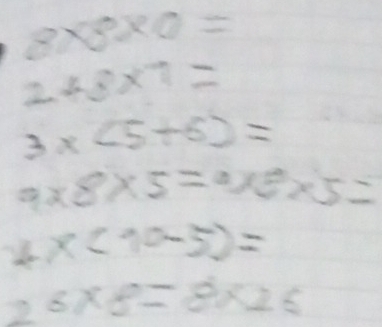 8×8×0=
2+8×7=
3×(5+6)=
9×8×5=9×8×5=
4×(10-5)=
26×8=8×26